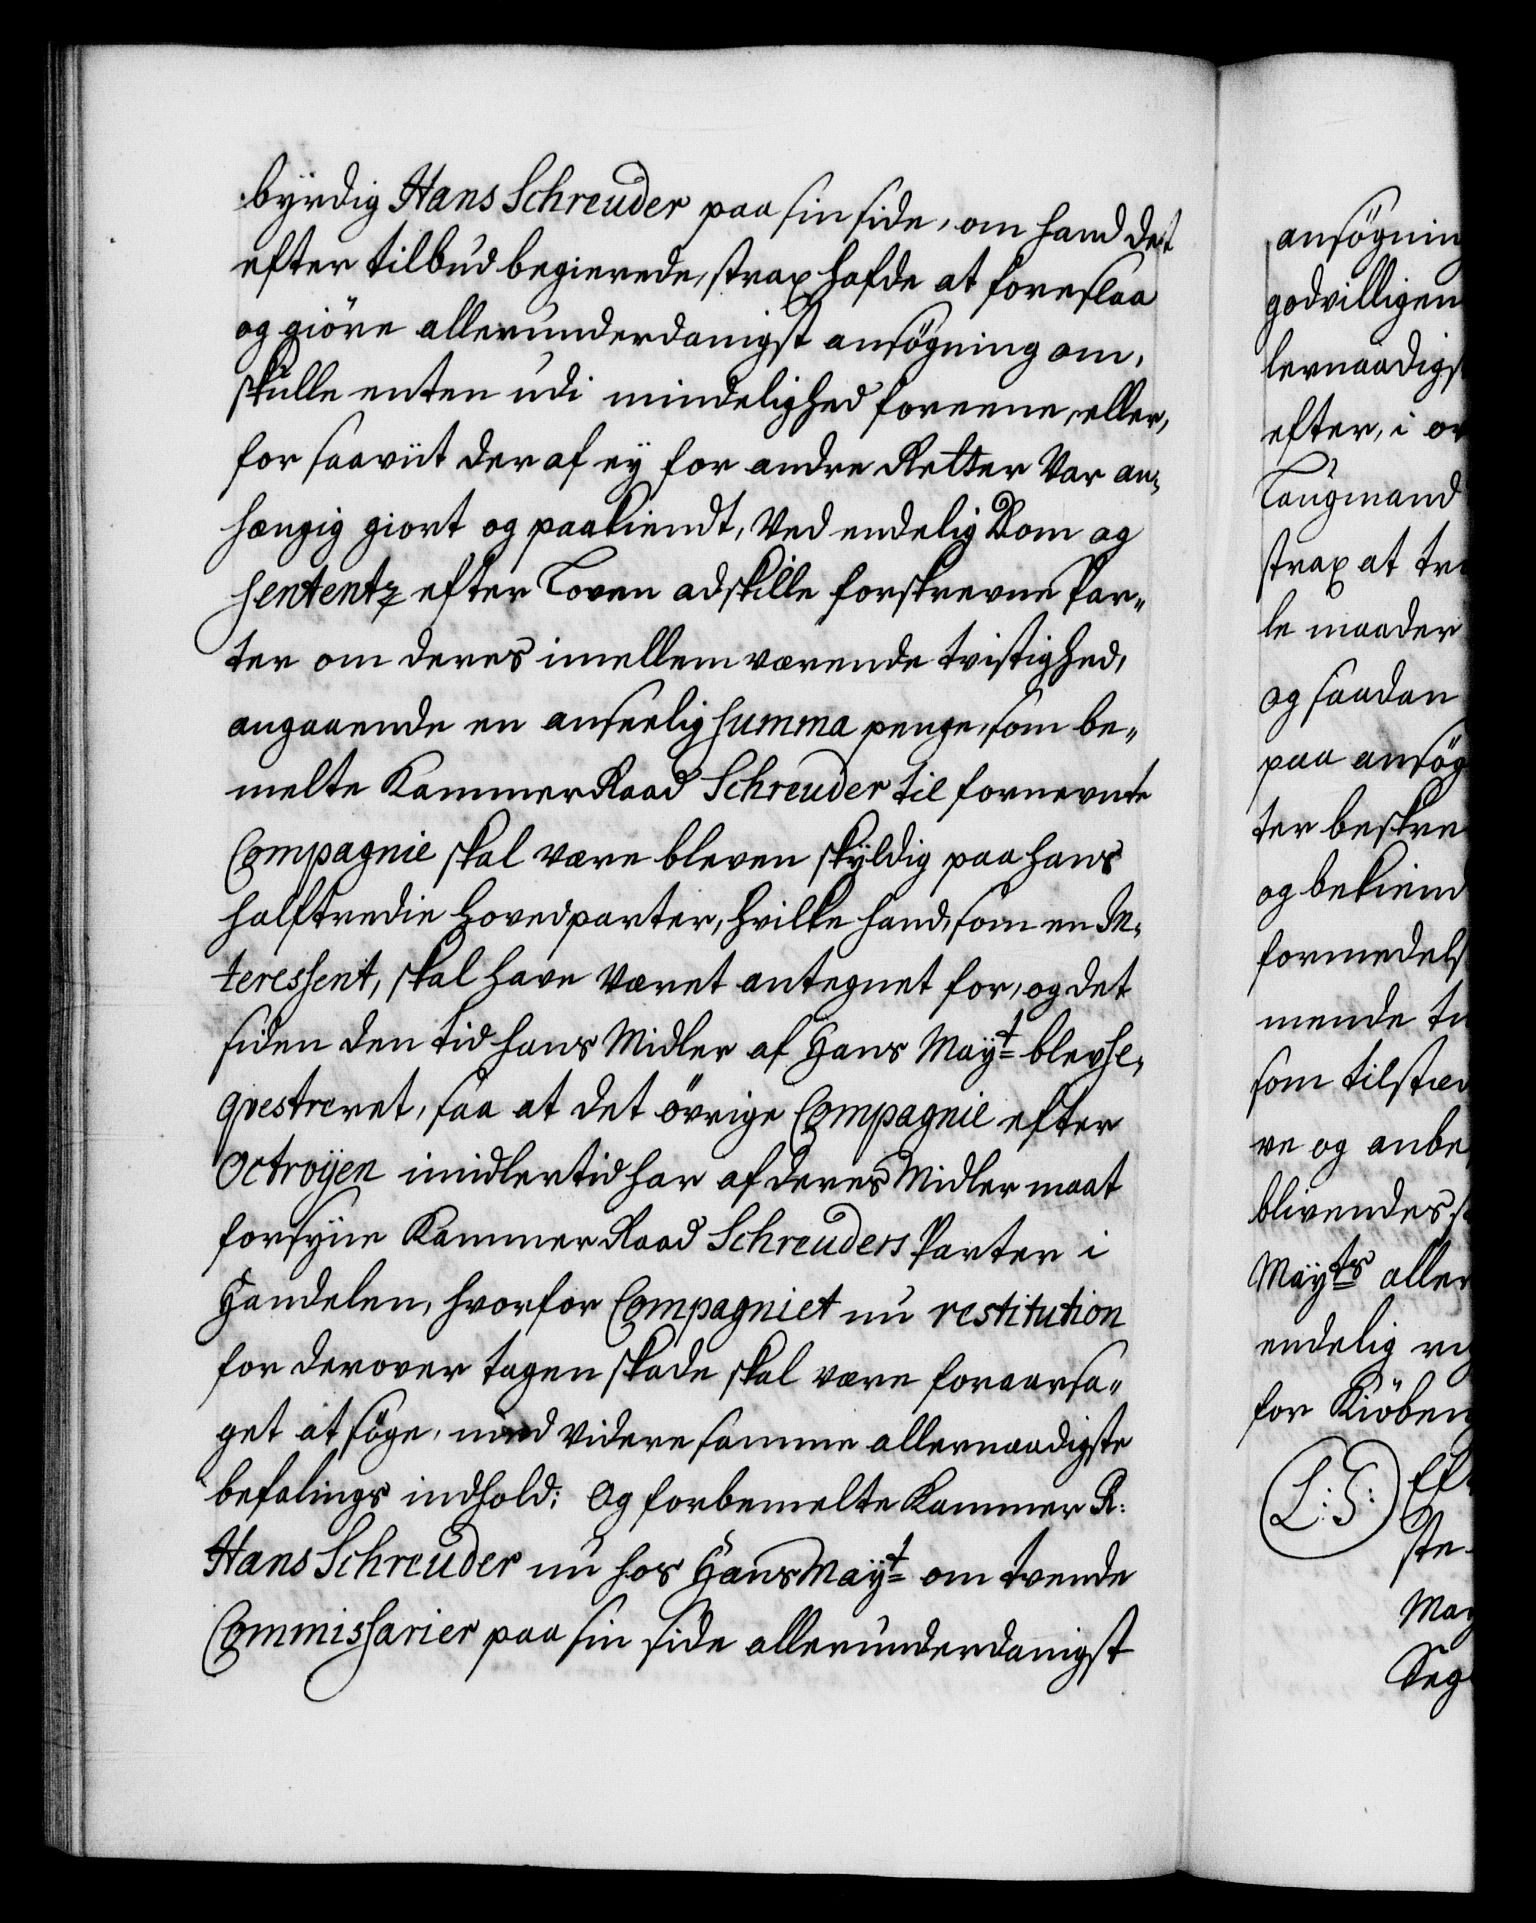 byrdig Hans Schreuder paa sin side, om hand det
efter tilbud begierede, strax hafde at foreslaa
og giöre allerunderdanigst ansögning om,
skulle enten udi mindelighed foreene, eller,
for saaviit deraf ey for andre Retter Var an-
hængig giort og paakiendt, Ved endelig Dom og
Sententz efter Loven adskille forskrevne Par-
ter om deres imellem værende tvistighed,
angaaende en anseelig Summa penge, som be-
melte Kammer Raad Schreuder til fornevnte
Compagnie skal være bleven skyldig paa hans
halftredie hovedparter, hvilke hand, som en In-
teressent, skal have Været antegnet for, og det
siden den tid hans Midler af Hans Mayt blev se-
qvestreret, saa at det övrige Compagnie efter
Octroyen imidlertid har af deres Midler maat
forsyne Kammer Raad Schreuders Parter i
Handelen, hvorfor Compagniet nu restitution
for derover tagen skade skal være foraarsa-
get at söge, med Videre samme allernaadigste
befalings indhold: Og forbemelte Kammer R:
Hans Schreuder nu hos Hans Mayt om tvende
Commissarier paa sin side allerunderdanigst
ansögning
godvilligen
lernaadigst
efter, i
Laugmand
strax at
le maader
og saadan
paa ansög
ter beskre
og bekiend
formedelst
mende
som tilstæ
re og anbe
blivendes
Mayts aller
endelig
for Kiöben
L:S: Eft
ste
May
Seg